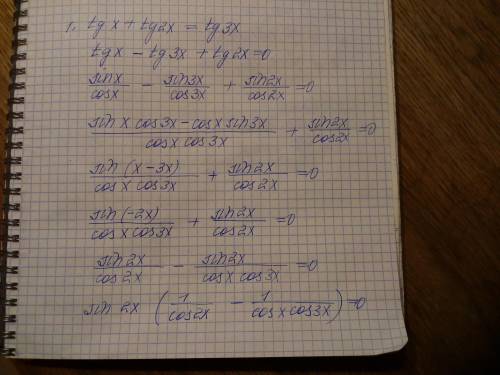 1. tg x + tg 2x = tg 3x
tg x - tg 3x + tg 2x = 0
sin x / cos x - sin 3x / cos 3x + sin 2x / cos 2x = 0
sin x cos 3x - cos x sin 3x / cos x cos 3x + sin 2x / cos 2x = 0
sin (x - 3x) / cos x cos 3x + sin 2x / cos 2x = 0
sin (-2x) / cos x cos 3x + sin 2x / cos 2x = 0
sin 2x / cos 2x - sin 2x / cos x cos 3x = 0
sin 2x ( 1 / cos 2x - 1 / cos x cos 3x ) = 0